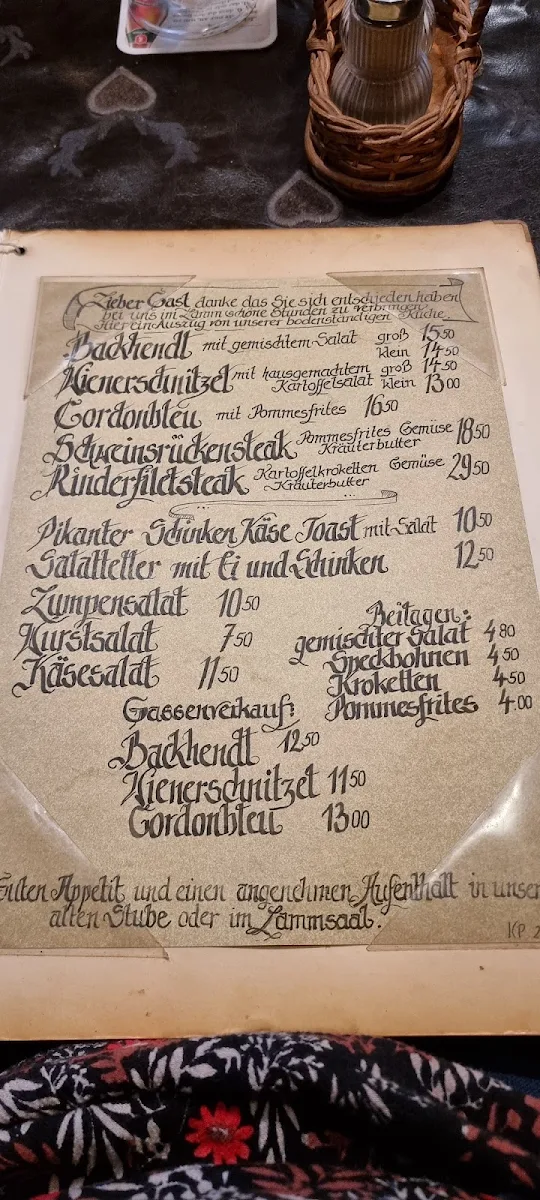 Lieber Gast danke das Sie sich entschieden haben
bei uns im Lamm schöne Stunden zu verbringen.
Hier ein Auszug von unserer bodenständigen Küche.
Backhendl mit gemischtem Salat groß 15 50
klein 14 50
Wienerschnitzel mit hausgemachtem groß 14 50
Kartoffelsalat klein 13 00
Gordonbleu mit Pommesfrites 16 50
Schweinsrückensteak Pommesfrites Gemüse 18 50
Kräuterbutter
Rinderfiletsteak Kartoffelkroketten Gemüse 29 50
Kräuterbutter
Pikanter Schinken Käse Toast mit Salat 10 50
Salatteller mit Ei und Schinken 12 50
Lumpensalat 10 50
Wurstsalat 7 50
Käsesalat 11 50
Beilagen:
gemischter Salat 4 80
Speckbohnen 4 50
Kroketten 4 50
Pommesfrites 4.00
Gassenverkauf:
Backhendl 12 50
Wienerschnitzel 11 50
Gordonbleu 13 00
Guten Appetit und einen angenehmen Aufenthalt in unser
alten Stube oder im Lammsaal.